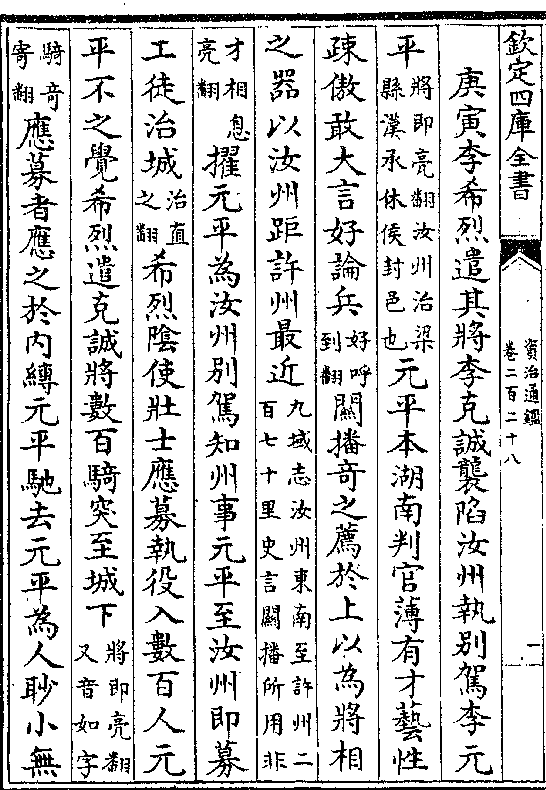 欽定四庫全書
資治通鑑
卷二百二十八
一
庚寅李希烈遣其將李克誠襲陷汝州執別駕李元
平將即亮翻汝州治梁縣漢承休侯封邑也元平本湖南判官薄有才藝性
疎傲敢大言好論兵好呼到翻闗播奇之薦於上以為將相
之器以汝州距許州最近九域志汝州東南至許州二百七十里史言闗播所用非
才相息亮翻擢元平為汝州別駕知州事元平至汝州即募
工徒治城治直之翻希烈隂使壯士應募執役入數百人元
平不之覺希烈遣克誠將數百騎突至城下將即亮翻又音如字
騎奇寄翻應募者應之於内縛元平馳去元平為人眇小無